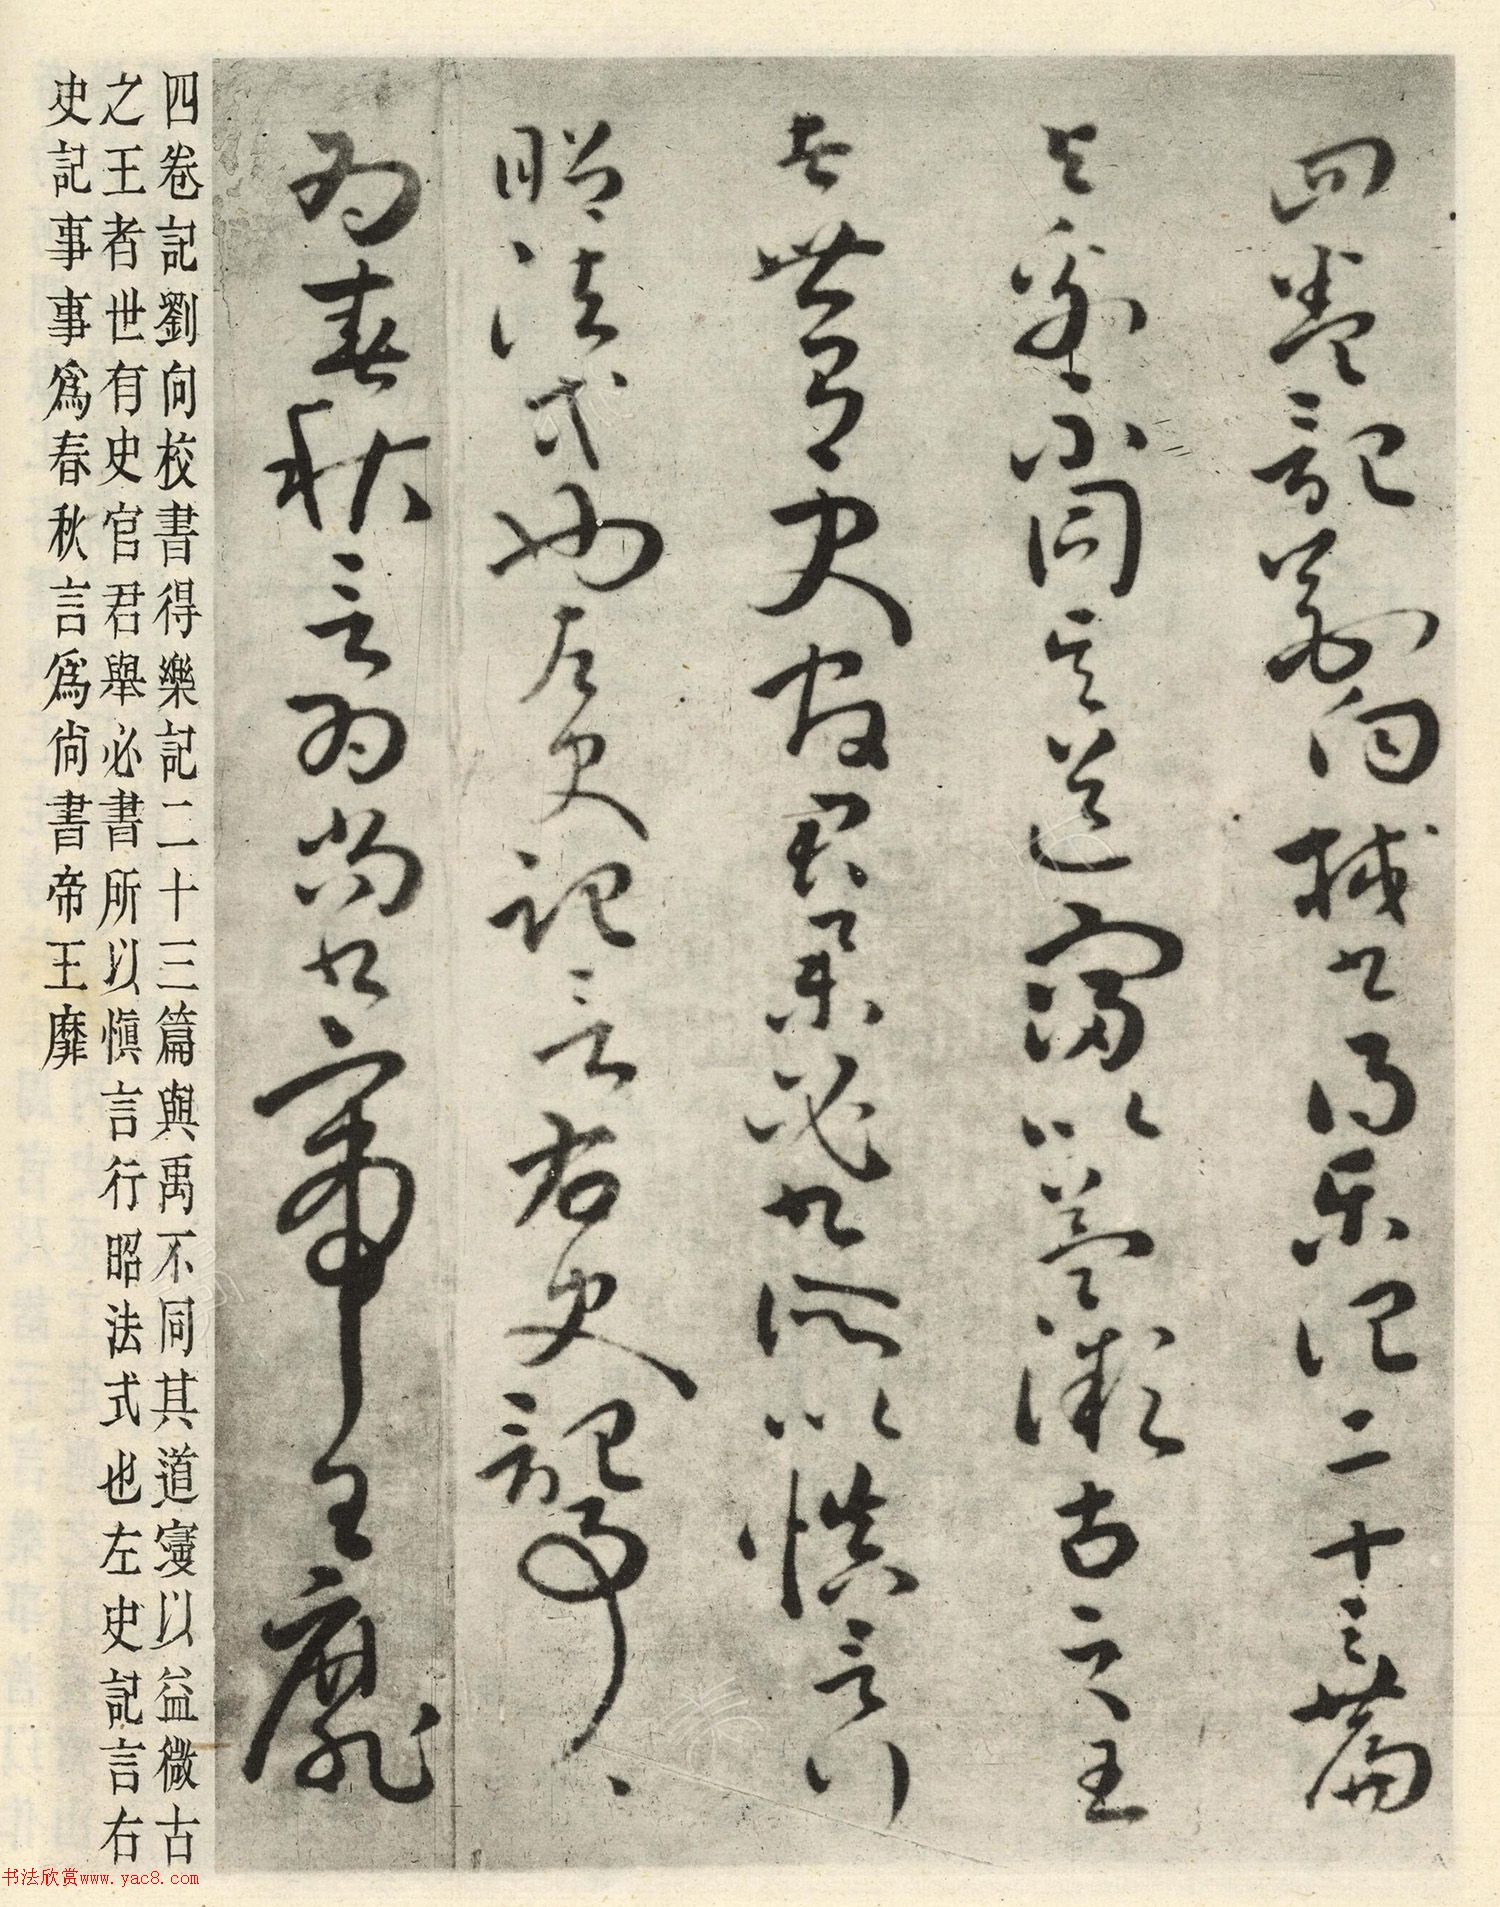 四卷記劉向校書得樂記二十三篇
與禹不同其道寖以益微古之王
者世有史官君舉必書所以慎言行
昭法式也左史記言右史記事、
為春秋言為尚書帝王靡
四卷記劉向校書得樂記二十三篇與禹不同其道寖以益微古
之王者世有史官君舉必書所以愼言行昭法式也左史記言右
史記事事爲春秋言爲尙書帝王靡
书法欣赏www.yac8.com